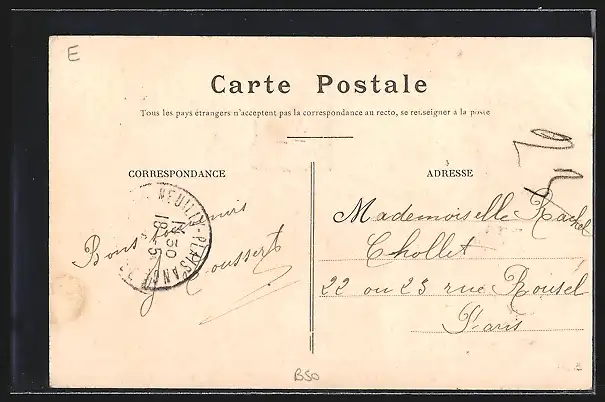 E
Carte Postale
Tous les pays étrangers n'acceptent pas la correspondance au recto, se renseigner à la poste
CORRESPONDANCE
ADRESSE
NEUILLY-PLAISANCE
18 30
18 -5
Bons
J Coussert
Mademoiselle Rachel
Chollet
22 ou 23 rue Rousél
Paris
B50